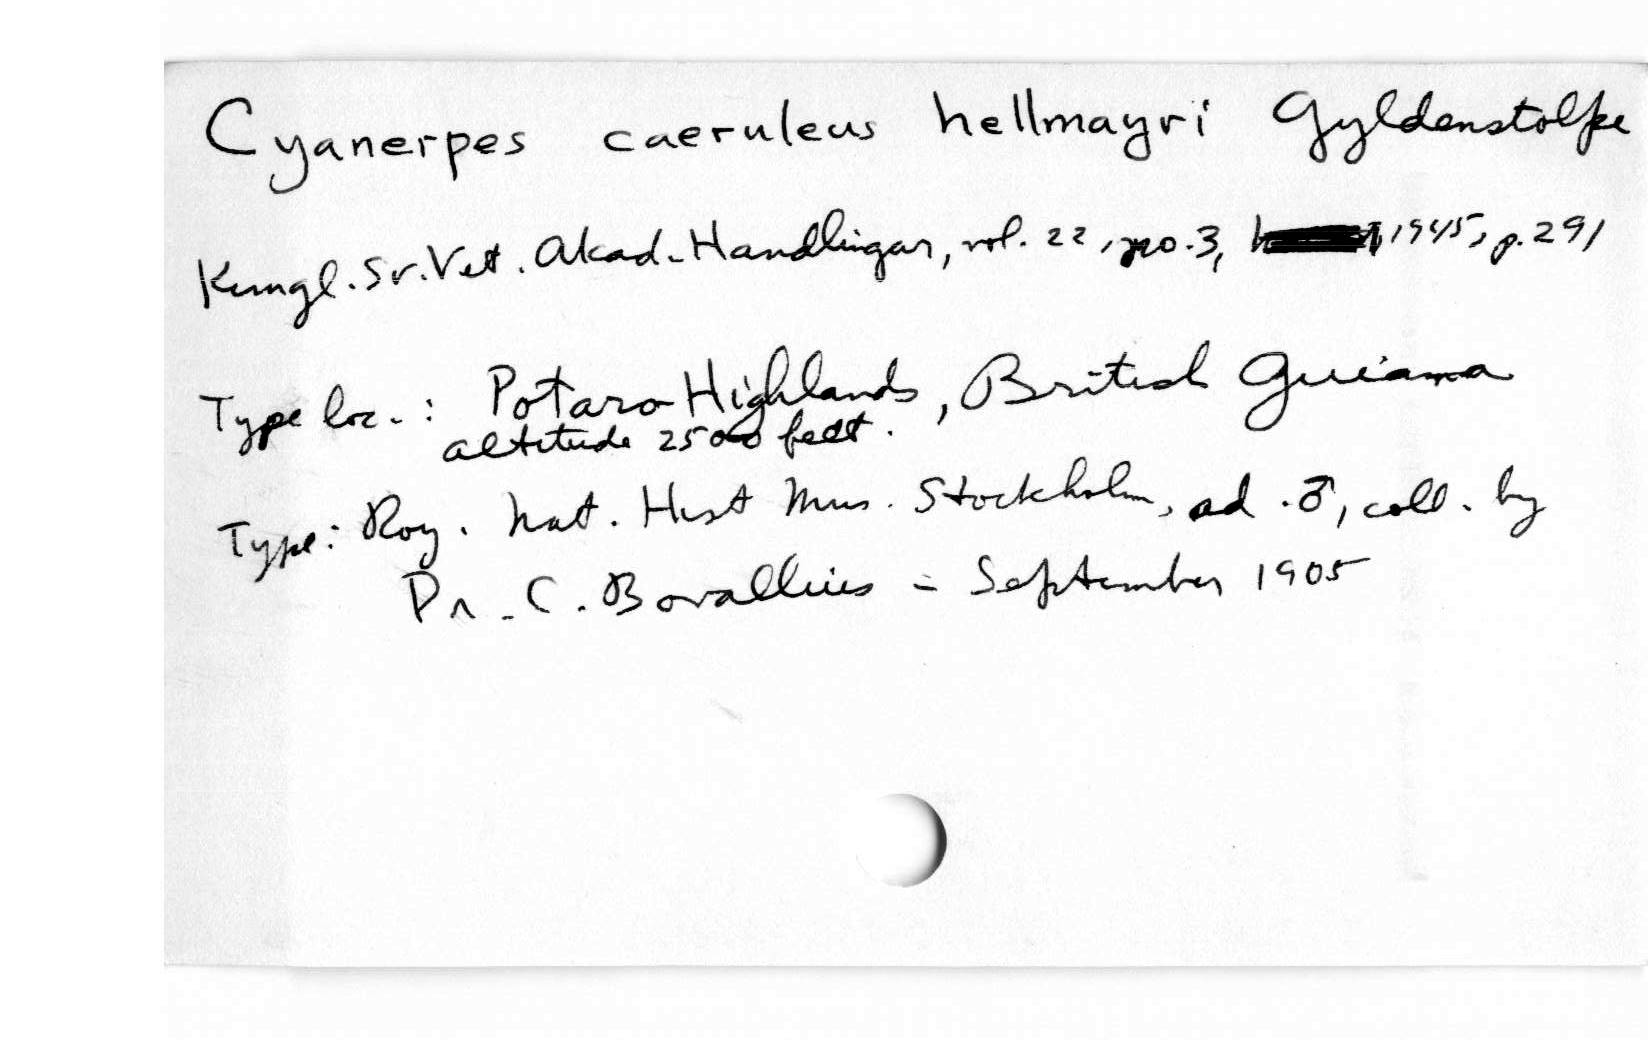 Cyanerpes caeruleus hellmayri Gyldenstolpe
Kungl. Sv. Vet. Akad. Handlingar, vol. 22, no. 3, 1945, p. 291
Type loc. : Potaro Highlands, British Guiana
altitude 2500 feet.
Type: Roy. Nat. Hist Mus. Stockholm, ad. ♂, coll. by
Dr. C. Bovallius - September 1905